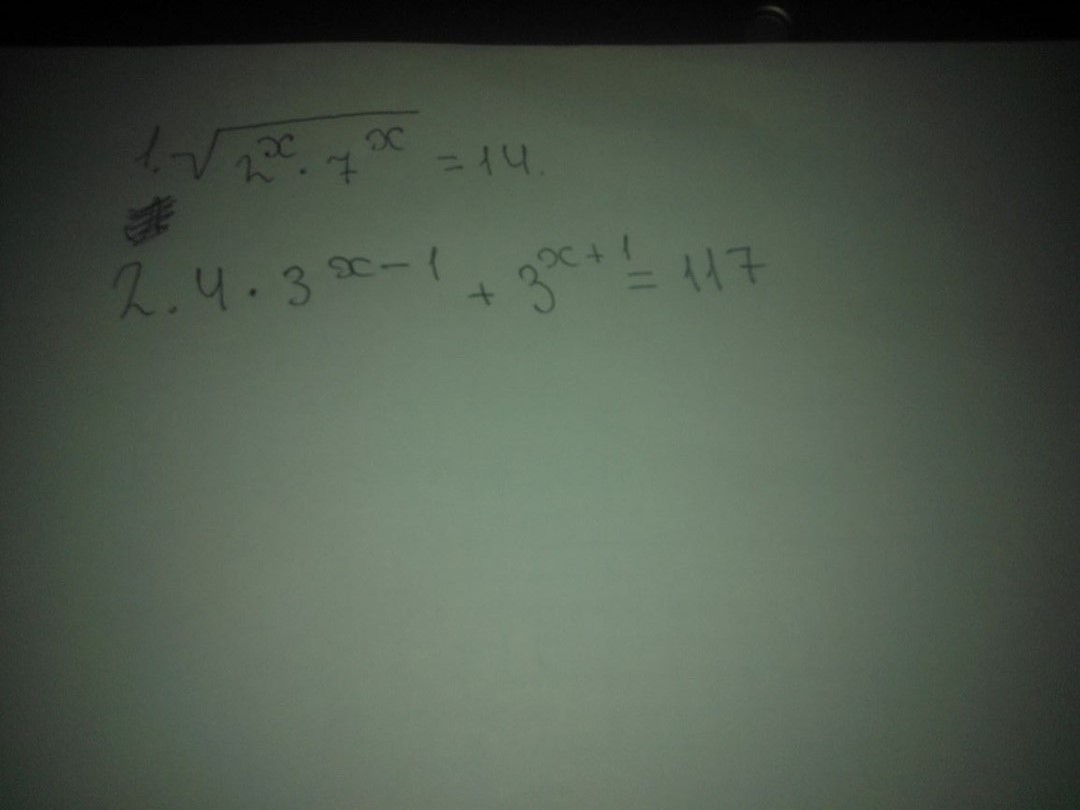 1. √(2^x · 7^x) = 14.
2. 4 · 3^(x-1) + 3^(x+1) = 117